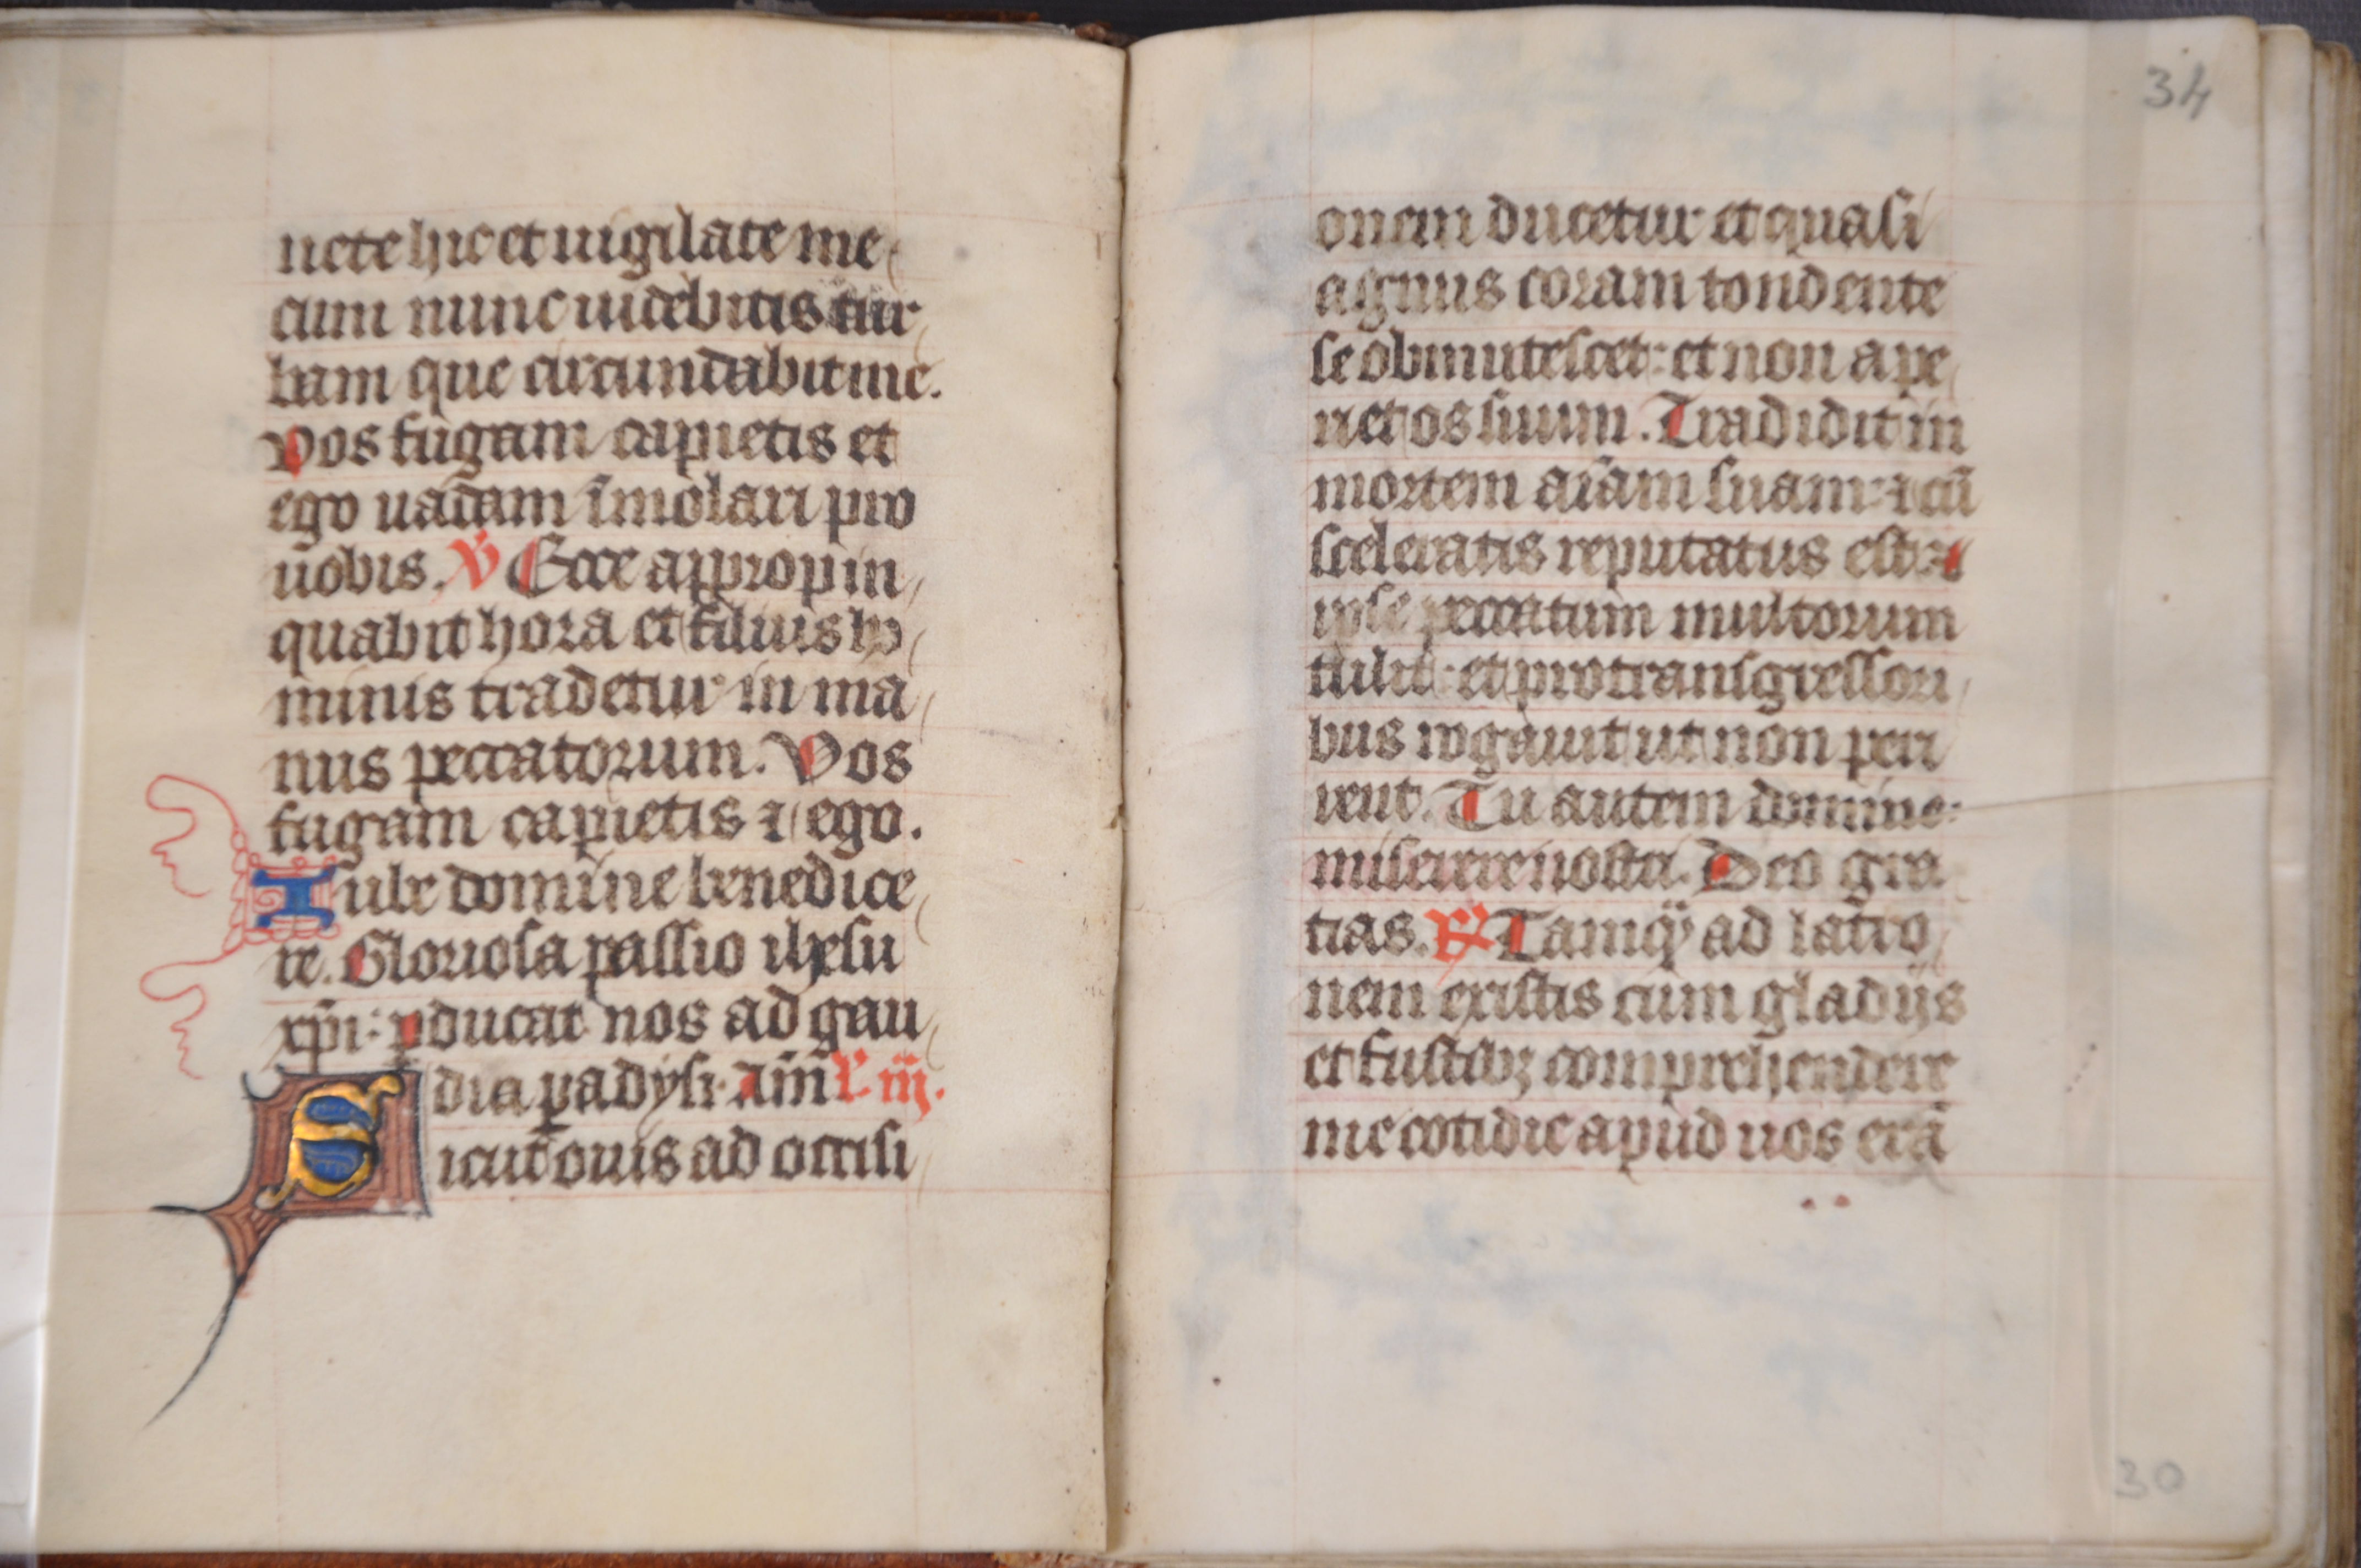 nete hic et uigilate me
cum nunc uidebitis tur
bam que circundabit me.
Vos fugam capietis et
ego uadam imolari pro
uobis. V̷ Ecce appropin
quabit hora et filius ho
minis tradetur in ma
nus peccatorum. Vos
fugam capietis ⁊ ego.
Iube domine benedice
re. Gloriosa passio ihesu
xp̄i: ꝑducat nos ad gau
dia ꝑadysi. am̄ L̄ iij.
Sicut ouis ad occisi
34
onem ducetur et quasi
agnus coram tondente
se obmutescet: et non ape
riet os suum. Tradidit in
mortem aīam suam: ⁊ cū
sceleratis reputatus est: ⁊
ipse peccatum multorum
tulit: et pro transgressori
bus rogauit ut non peri
rent. Tu autem domine:
miserere nostri. Deo gra
tias. ℟ Tamq̄ ad latro
nem existis cum gladijs
et fustibꝫ comprehendere
me cotidie apud uos erā
30